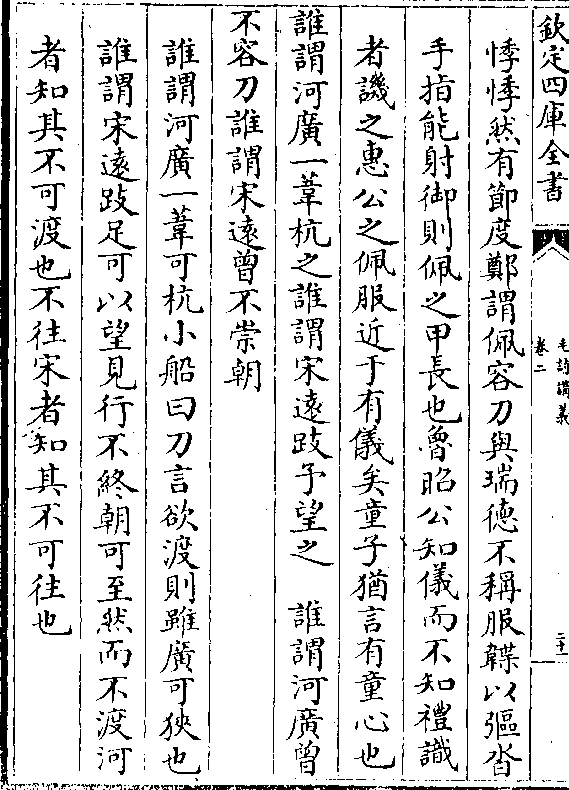 悸悸然有節度鄭謂佩容刀與瑞德不稱服韘以彄沓
手指能射御則佩之甲長也魯昭公知儀而不知禮識
者譏之惠公之佩服近于有儀矣童子猶言有童心也
誰謂河廣一葦杭之誰謂宋遠跂予望之　誰謂河廣曾
不容刀誰謂宋遠曾不崇朝
誰謂河廣一葦可杭小船曰刀言欲渡則雖廣可狹也
誰謂宋遠跂足可以望見行不終朝可至然而不渡河
者知其不可渡也不往宋者知其不可往也
欽定四庫全書
毛詩講義
卷二
二十